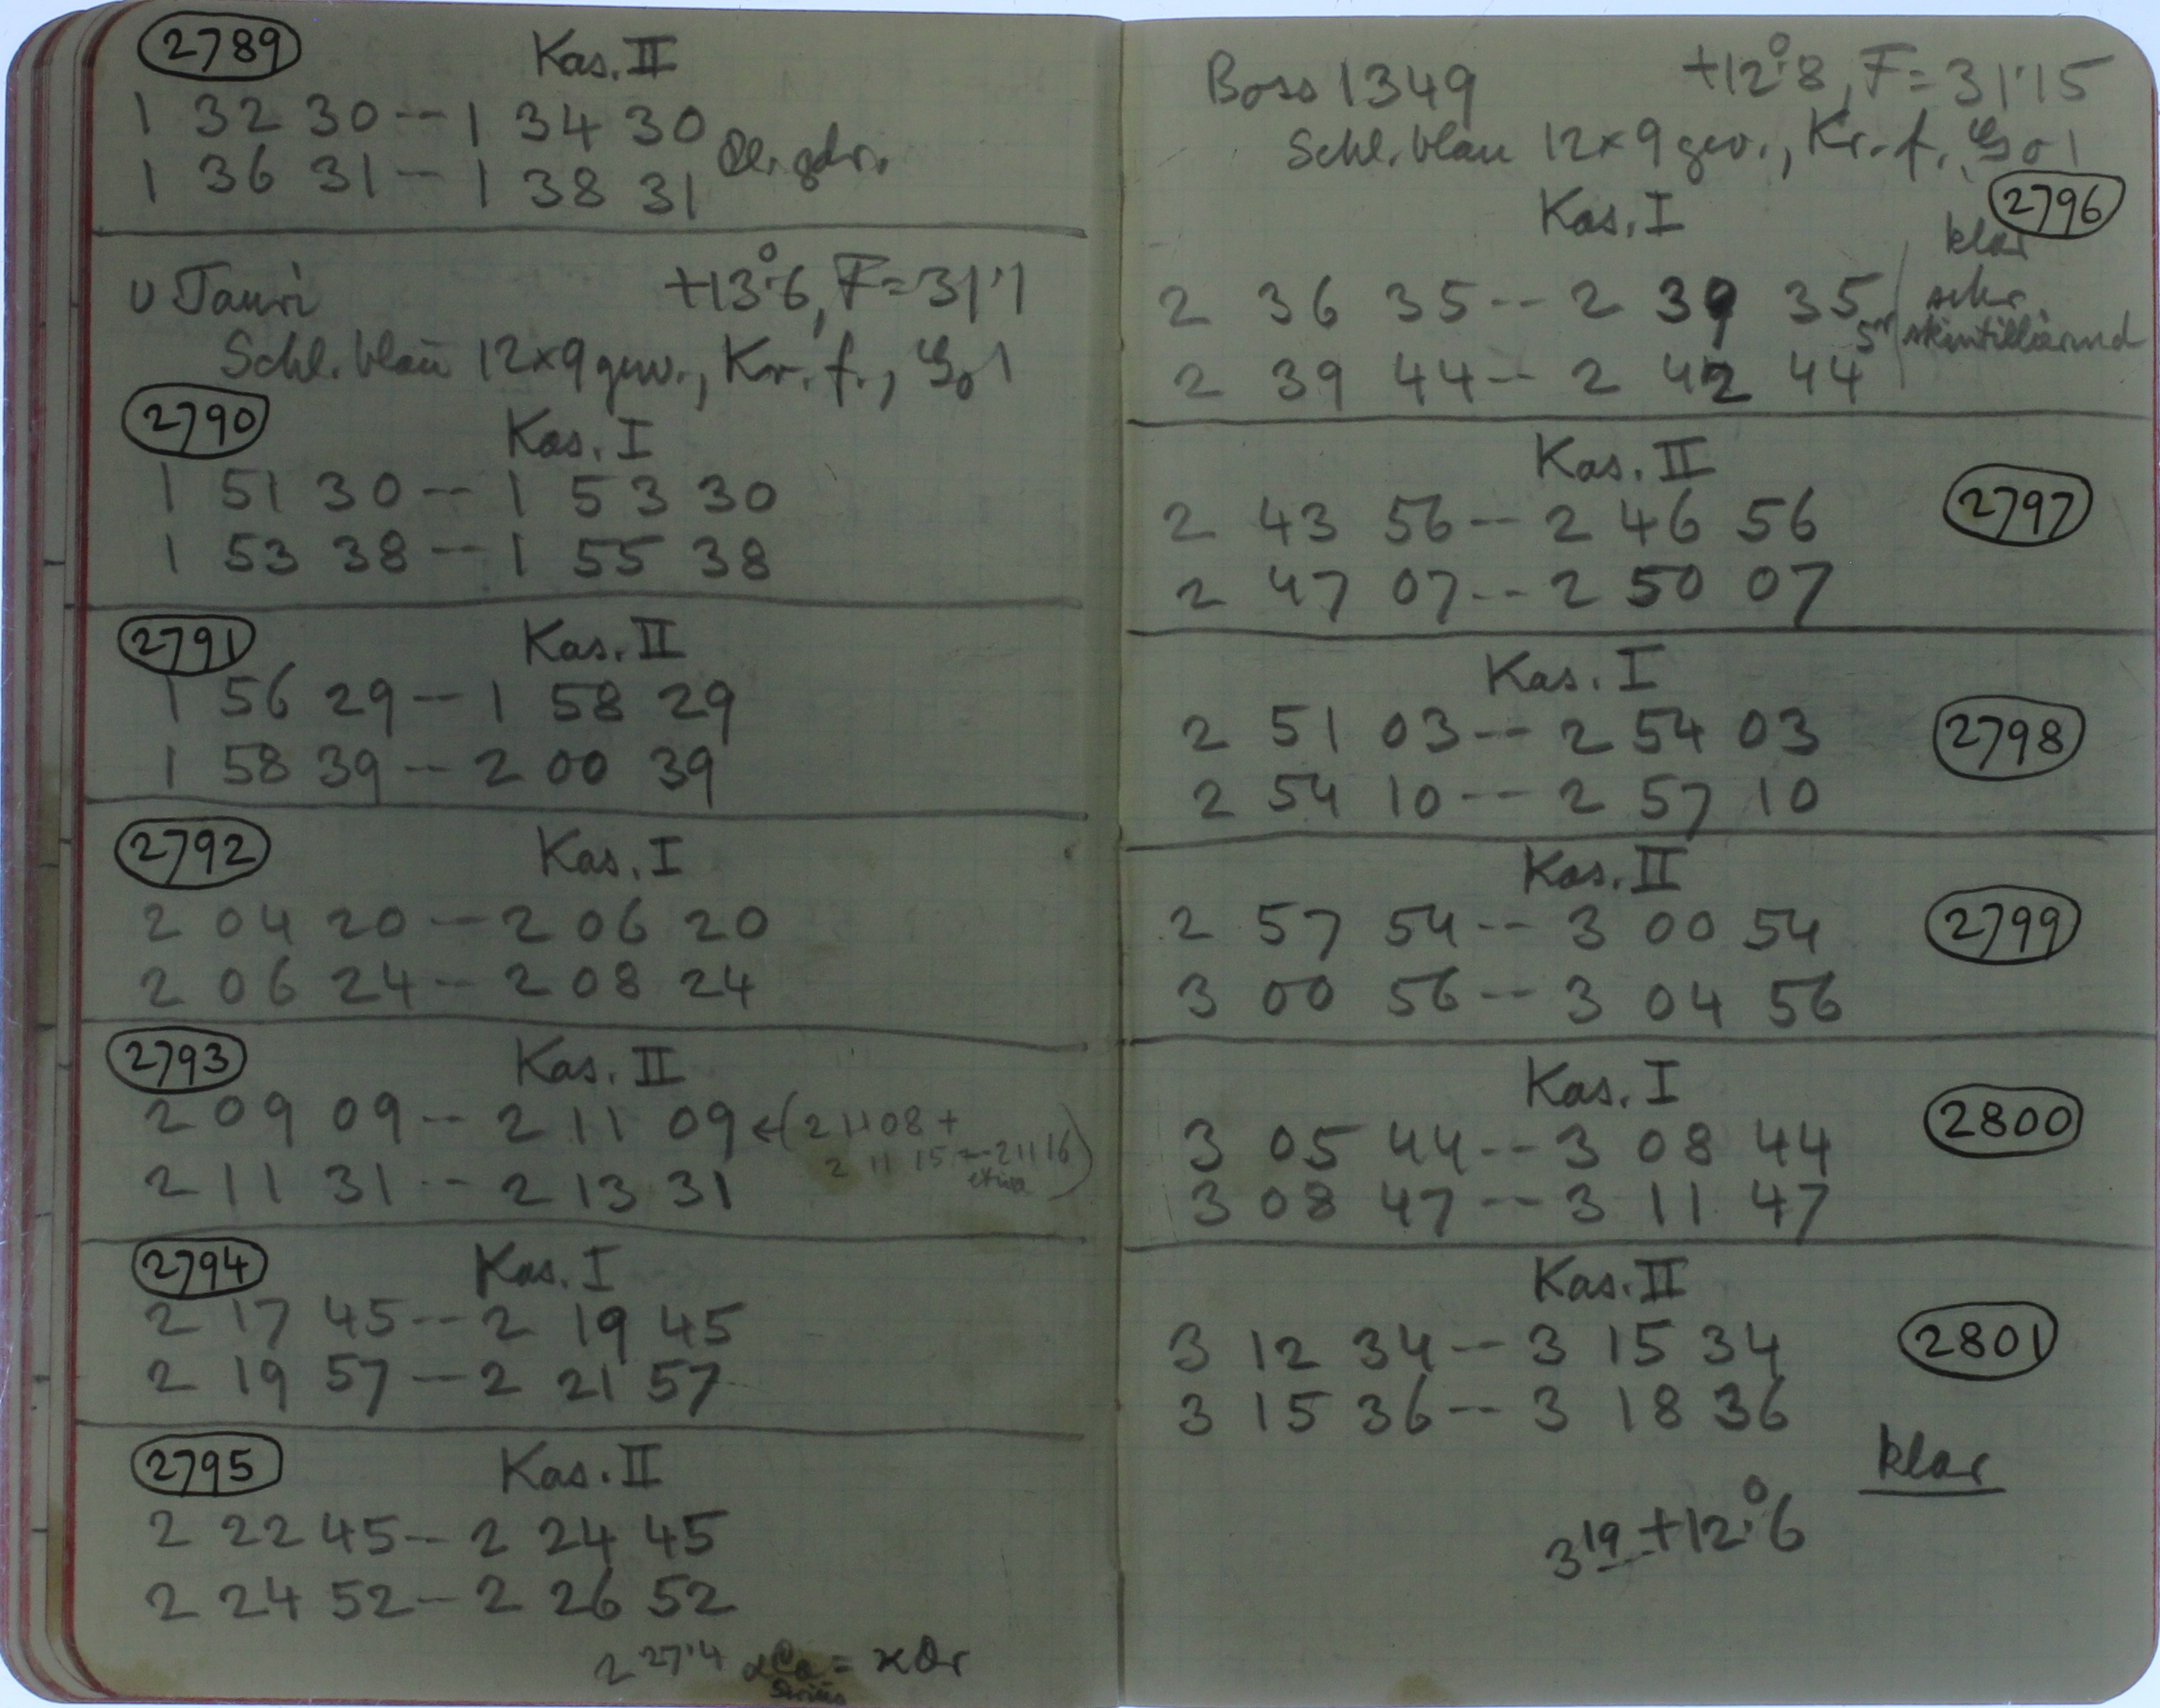 2789 Kas. II
1 32 30 -- 1 34 30
1 36 31 -- 1 38 31
υ Tauri +13°.6, F = 31.1
Schl. blau 12×9 gew., Kr. f., 1
2790 Kas. I
1 51 30 -- 1 53 30
1 53 38 -- 1 55 38
2791 Kas. II
1 56 29 -- 1 58 29
1 58 39 -- 2 00 39
2792 Kas. I
2 04 20 -- 2 06 20
2 06 24 -- 2 08 24
2793 Kas. II
2 09 09 -- 2 11 09 ← (2 11 08 +
2 11 15 -- 2 11 16
etwa)
2 11 31 -- 2 13 31
2794 Kas. I
2 17 45 -- 2 19 45
2 19 57 -- 2 21 57
2795 Kas. II
2 22 45 -- 2 24 45
2 24 52 -- 2 26 52
2 27.4 α = κ Or
Sirius
Boss 1349 +12°.8, F = 31.15
Schl. blau 12×9 gew., Kr. f., 1
Kas. I 2796
klar
2 36 35 -- 2 39 35 sehr
5m szintillierend
2 39 44 -- 2 42 44
Kas. II
2 43 56 -- 2 46 56 2797
2 47 07 -- 2 50 07
Kas. I
2 51 03 -- 2 54 03 2798
2 54 10 -- 2 57 10
Kas. II
2 57 54 -- 3 00 54 2799
3 00 56 -- 3 04 56
Kas. I
3 05 44 -- 3 08 44 2800
3 08 47 -- 3 11 47
Kas. II
3 12 34 -- 3 15 34 2801
3 15 36 -- 3 18 36
klar
3 19 +12°.6